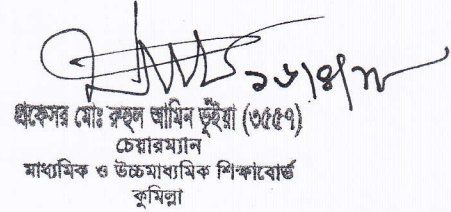 ১৬/৪/১৮
প্রফেসর মোঃ রুহুল আমিন ভূঁইয়া (৩৫৫৭)
চেয়ারম্যান
মাধ্যমিক ও উচ্চমাধ্যমিক শিক্ষাবোর্ড
কুমিল্লা